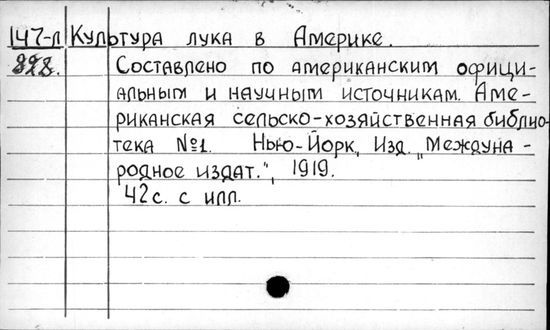 147-л Культура лука в Америке.
828. Составлено по американским офици-
альным и научным источникам. Аме-
риканская сельско-хозяйственная библио-
тека №1. Нью-Йорк, Изд. "Междуна-
родное издат.", 1919.
42с. с илл.